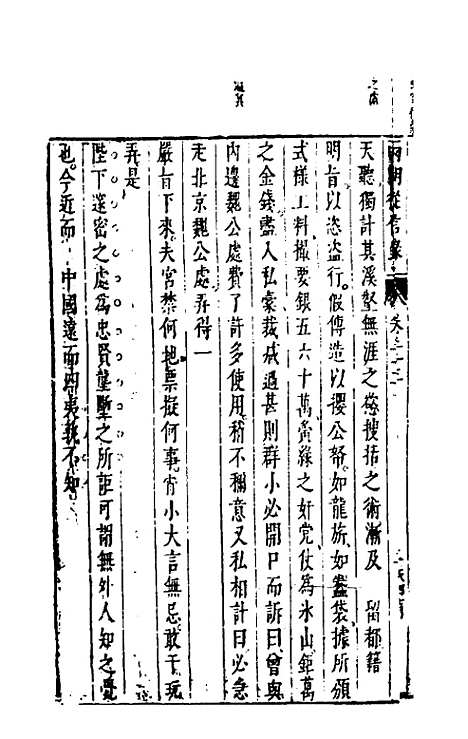 兩朝從信錄
天聽獨計其溪壑無涯之慾搜括之術漸及 留都藉
明旨以恣盜行假傳造以擾公帑如龍旂如蓋袋據所頒
式樣工料撮要銀五六十萬夤緣之奸党仗為氷山鉅萬
之金錢盡入私橐裁减過甚則群小必開口而訴曰曾與
內邊魏公處費了許多使用稍不稱意又私相計曰必急
走北京魏公處弄得一
嚴旨下來夫宮禁何地票擬何事宵小大言無忌敢于玩
弄是
陛下邃密之處為忠賢壟斷之所詎可謂無外人知之覺
也今近而 中國遠而四夷孰不知